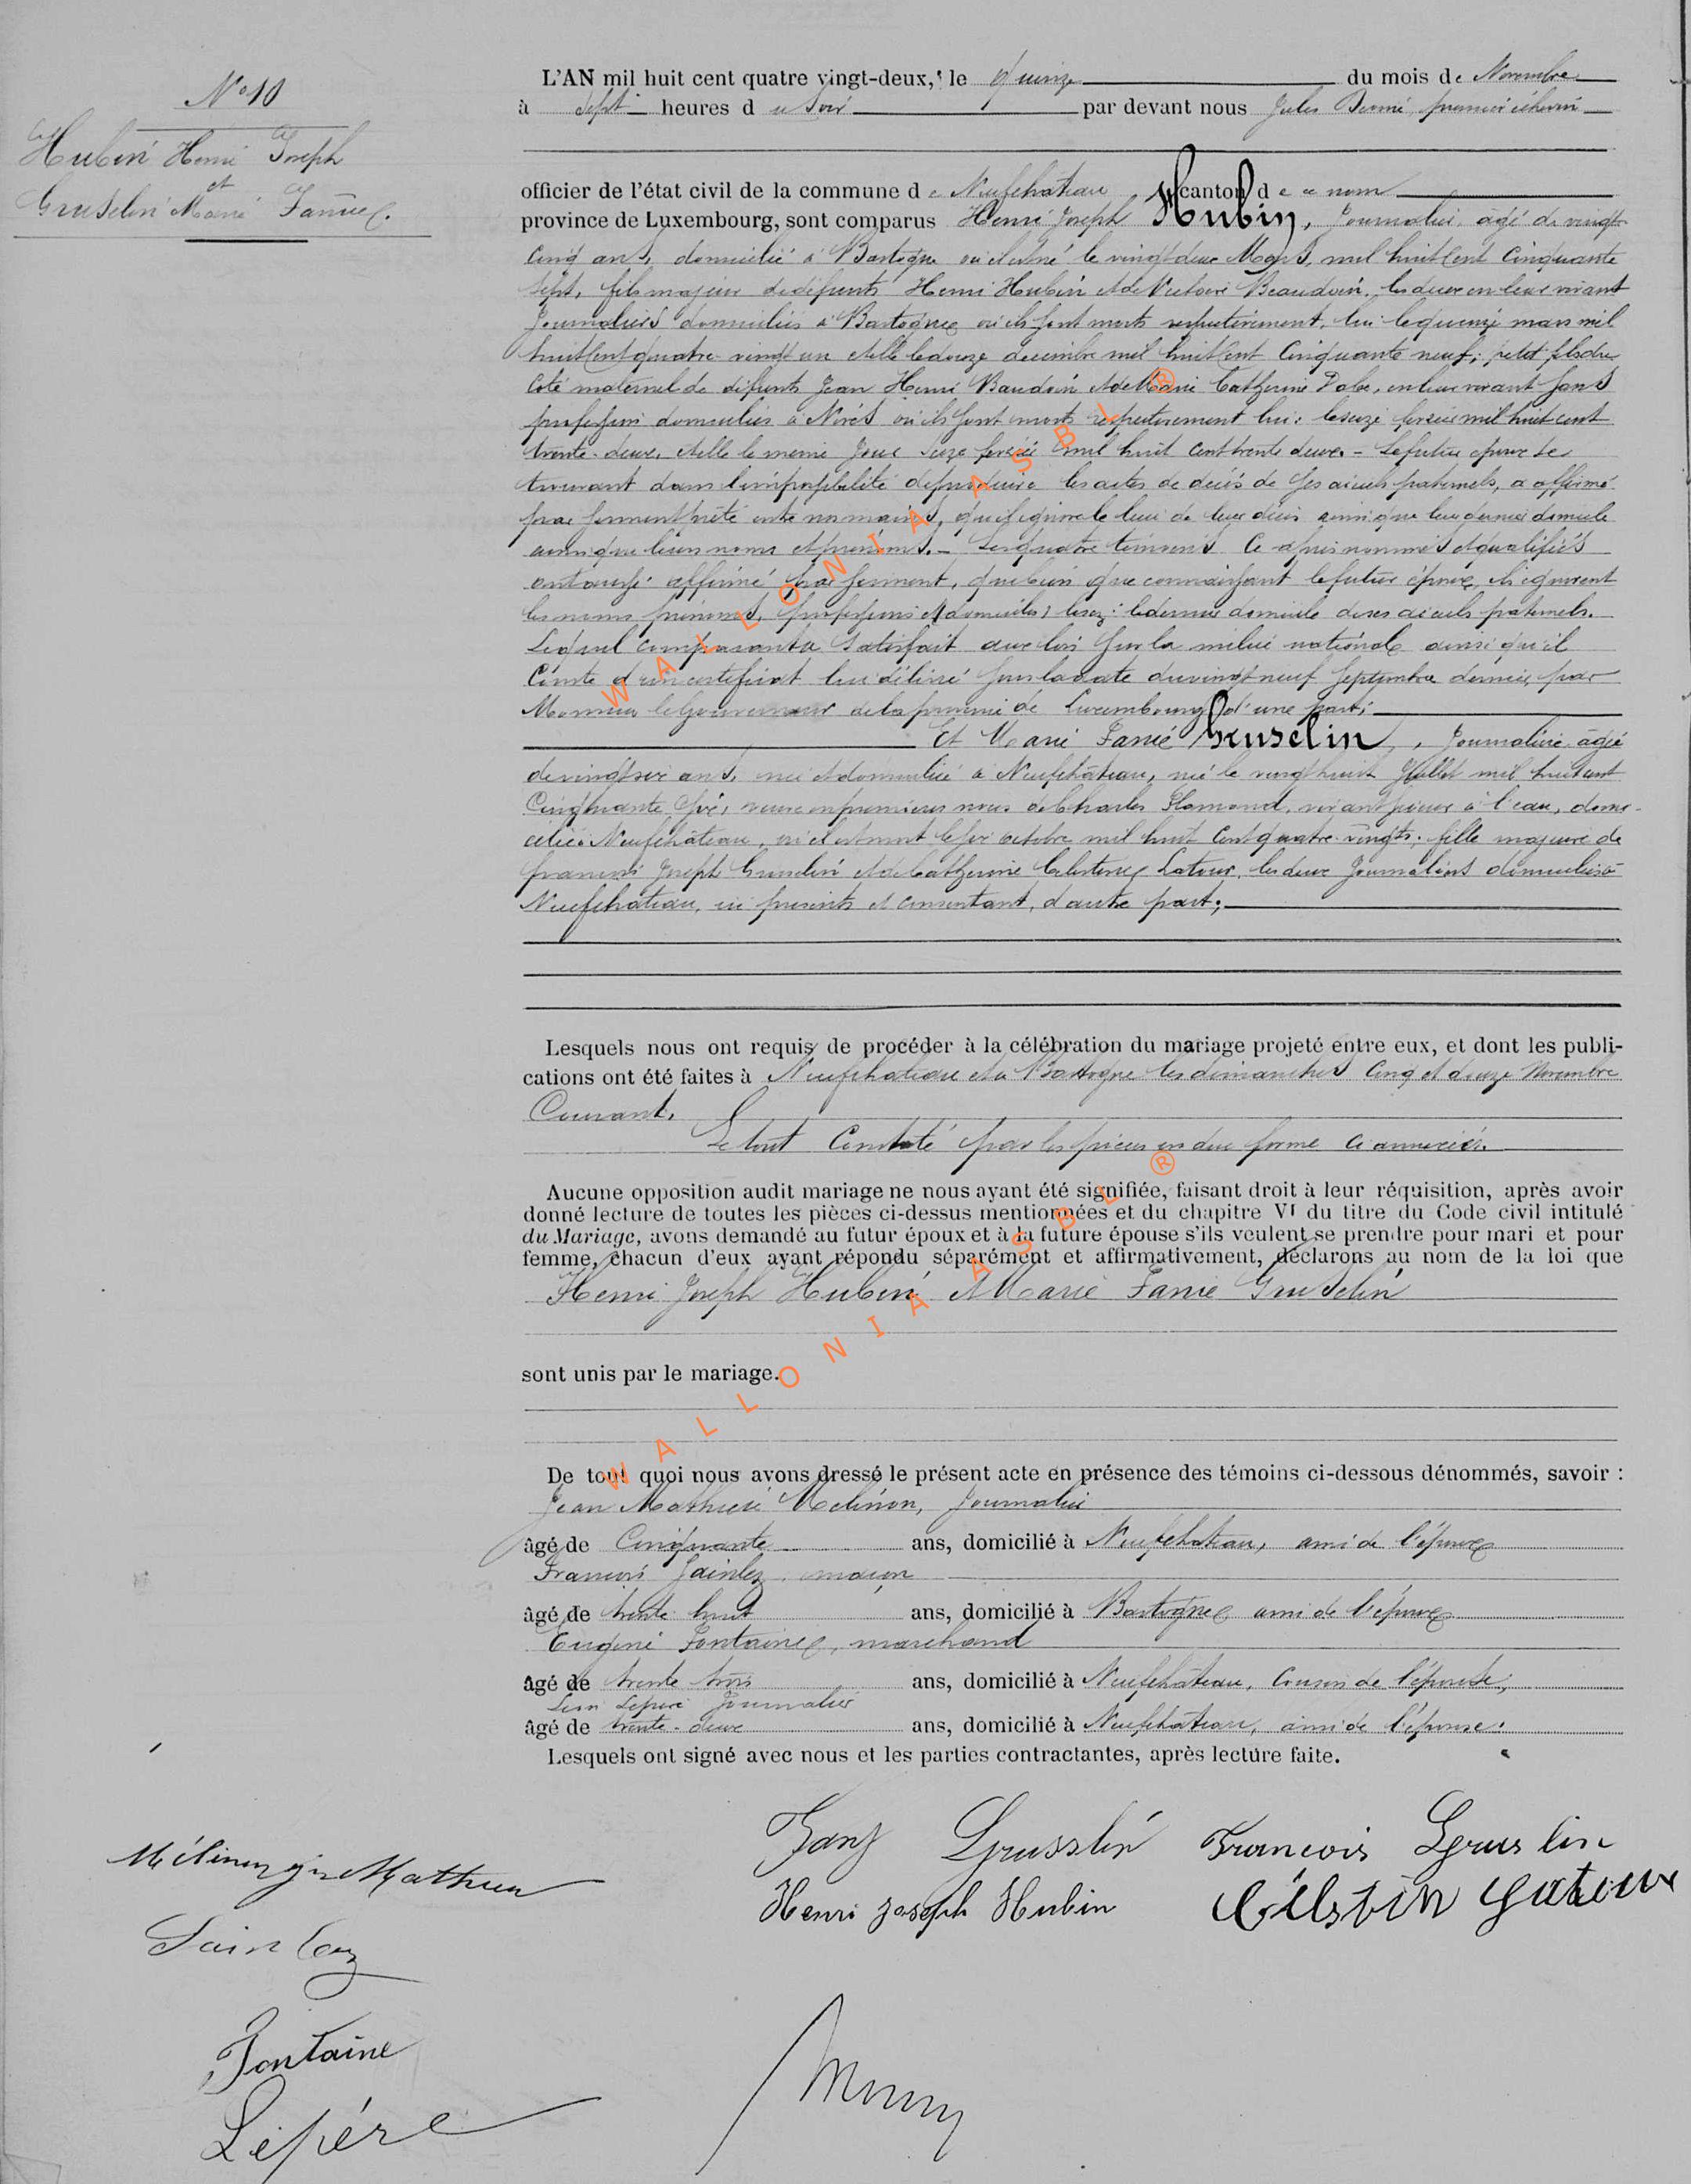 N° 10
Hubin Henri Joseph
et
Gruselin Marie Fannie.
L'AN mil huit cent quatre vingt-deux, le quinze du mois de Novembre
à sept heures du Soir par devant nous Jules premier échevin
officier de l'état civil de la commune de Neufchateau, canton de ce nom
province de Luxembourg, sont comparus Henri Joseph Hubin, Journalier, âgé de vingt
Cinq ans, domicilié à Bastogne où il est né le vingt deux Mars, mil huit Cent Cinquante
Sept, fils majeur de défunts Henri Hubin et de Victoire Beaudoin, les deux en leur vivant
Journaliers domiciliés à Bastogne où ils sont morts respectivement, lui: le quinze mars mil
huit Cent quatre-vingt un et elle le douze décembre mil huit Cent Cinquante neuf; petit fils du
Coté maternel de défunts Jean Henri Baudoin et de Marie Catherine, en leur vivant Sans
profession domiciliés à où ils sont morts respectivement lui: le seize février mil huit cent
trente-deux, et elle le même Jour Seize février mil huit Cent trente deux. – Le futur époux se
trouvant dans l'impossibilité de produire les actes de décès de Ses aieuls paternels, a affirmé
par Serment prêté entre nos mains, qu'il ignore le lieu de leur décès ainsi que leur dernier domicile
ainsi que leurs noms et prénoms. – Les quatre témoins Ci après nommés et qualifiés
ont aussi affirmé par Serment, que bien que connaissant le futur époux, ils ignorent
les noms prénoms, professions et domiciles; le dernier domicile de ses aieuls paternels.
Lequel Comparant a Satisfait aux lois Sur la milice nationale ainsi qu'il
Conste d'un certificat lui délivré Sous la date du vingt neuf Septembre dernier, par
Monsieur le Gouverneur de la province de Luxembourg, d'une part;
Et Marie Fanie Gruselin, Journalière, âgée
de vingt six ans, née et domiciliée à Neufchâteau, née le vingt huit Juillet mil huit cent
Cinquante Six, veuve en premières noces de Charles Flamand, vivant à l'eau, domi-
cilié à Neufchâteau, où il est mort le Six octobre mil huit Cent quatre-vingts; fille majeure de
François Joseph Gruselin et de Catherine Celestine Latour, les deux Journaliers domiciliés à
Neufchâteau, ici présents et consentant, d'autre part;
Lesquels nous ont requis de procéder à la célébration du mariage projeté entre eux, et dont les publi-
cations ont été faites à Neufchateau et à Bastogne les dimanches Cinq et douze Novembre
Courant.
Le tout Constaté par les pièces en due forme Ci annexées.
Aucune opposition audit mariage ne nous ayant été signifiée, faisant droit à leur réquisition, après avoir
donné lecture de toutes les pièces ci-dessus mentionnées et du chapitre VI du titre du Code civil intitulé
du Mariage, avons demandé au futur époux et à la future épouse s'ils veulent se prendre pour mari et pour
femme, chacun d'eux ayant répondu séparément et affirmativement, déclarons au nom de la loi que
Henri Joseph Hubin et Marie Fanie Gruselin
sont unis par le mariage.
De tout quoi nous avons dressé le présent acte en présence des témoins ci-dessous dénommés, savoir :
Jean Mathieu Melinon, Journalier
âgé de Cinquante ans, domicilié à Neufchateau, ami de l'époux
François Sainlez, maçon
âgé de trente huit ans, domicilié à Bastogne, ami de l'époux
Eugène Fontaine, marchand
âgé de trente trois ans, domicilié à Neufchâteau, Cousin de l'épouse;
Léon Lepère Journalier
âgé de trente-deux ans, domicilié à Neufchâteau, ami de l'épouse.
Lesquels ont signé avec nous et les parties contractantes, après lecture faite.
Fany Grusslin François Gruslin
Mathieu
Henri Joseph Hubin Célstin Latour
Sainlez
Fontaine
Lepére
WALLONIA ASBL ®
WALLONIA ASBL ®